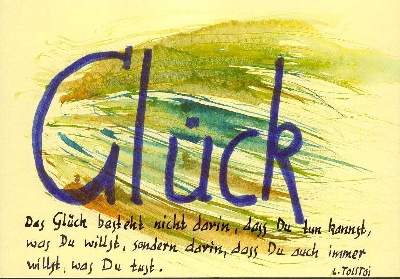 Glück
Das Glück besteht nicht darin, dass Du tun kannst,
was Du willst, sondern darin, dass Du auch immer
willst, was Du tust.
L. Tolstoi